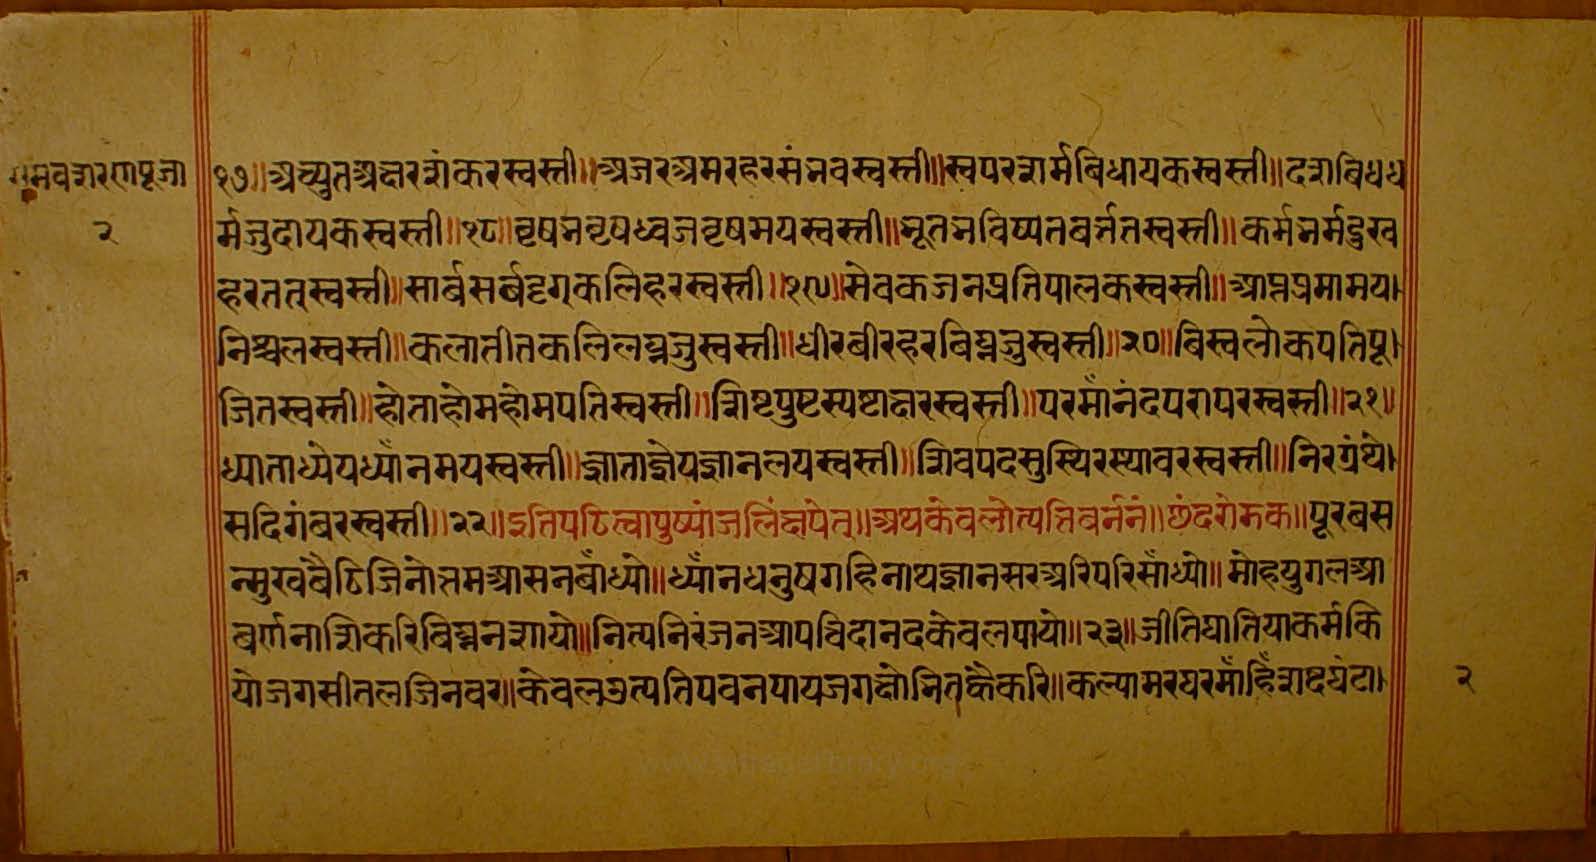 समवशरणपूजा
२
१७॥अच्युतअक्षरशंकरस्वस्ती॥अजरअमरहरसंभवस्वस्ती॥स्वपरशर्मबिधायकस्वस्ती॥दशबिधध
र्मजुदायकस्वस्ती॥१८॥वृषभवृषध्वजवृषमयस्वस्ती॥भूतभविष्यतवर्त्ततस्वस्ती॥कर्मभर्मदुख
हरततस्वस्ती॥सार्बसर्बदृगकलिहरस्वस्ती॥१९॥सेवकजनप्रतिपालकस्वस्ती॥आप्तप्रमामय।
निश्चलस्वस्ती॥कलातीतकलिलघ्नजुस्वस्ती॥धीरबीरहरबिघ्नजुस्वस्ती॥२०॥बिस्वलोकपतिपू।
जितस्वस्ती॥होताहोमहोमपतिस्वस्ती॥शिष्टपुष्टस्पष्टाक्षरस्वस्ती॥परमाँनंदपरापरस्वस्ती॥२१॥
ध्याताध्येयध्याँनमयस्वस्ती॥ज्ञाताज्ञेयज्ञानलयस्वस्ती॥शिवपदसुस्थिरस्थावरस्वस्ती॥निरग्रंथे।
सदिगंबरस्वस्ती॥२२॥इतिपठित्वापुष्पांजलिंक्षपेत्॥अथकेवलोत्पत्तिबर्ननं॥छंदरोमक॥पूरबस
न्मुखबैठिजिनोत्तमआसनबाँध्यो॥ध्याँनधनुषगहिनाथज्ञानसरअरिपरिसाँध्यो॥मोहयुगलआ
बर्णनाशिकरिबिघ्ननशायो॥नित्यनिरंजनआपचिदानदकेवलपायो॥२३॥जीतिघातियाकर्मकि
योजगसीतलजिनवर॥केवलउत्पतिपवनपायजगक्षोभितकैकरि॥कल्पामरघरमाँहिँशष्टघंटा।
२